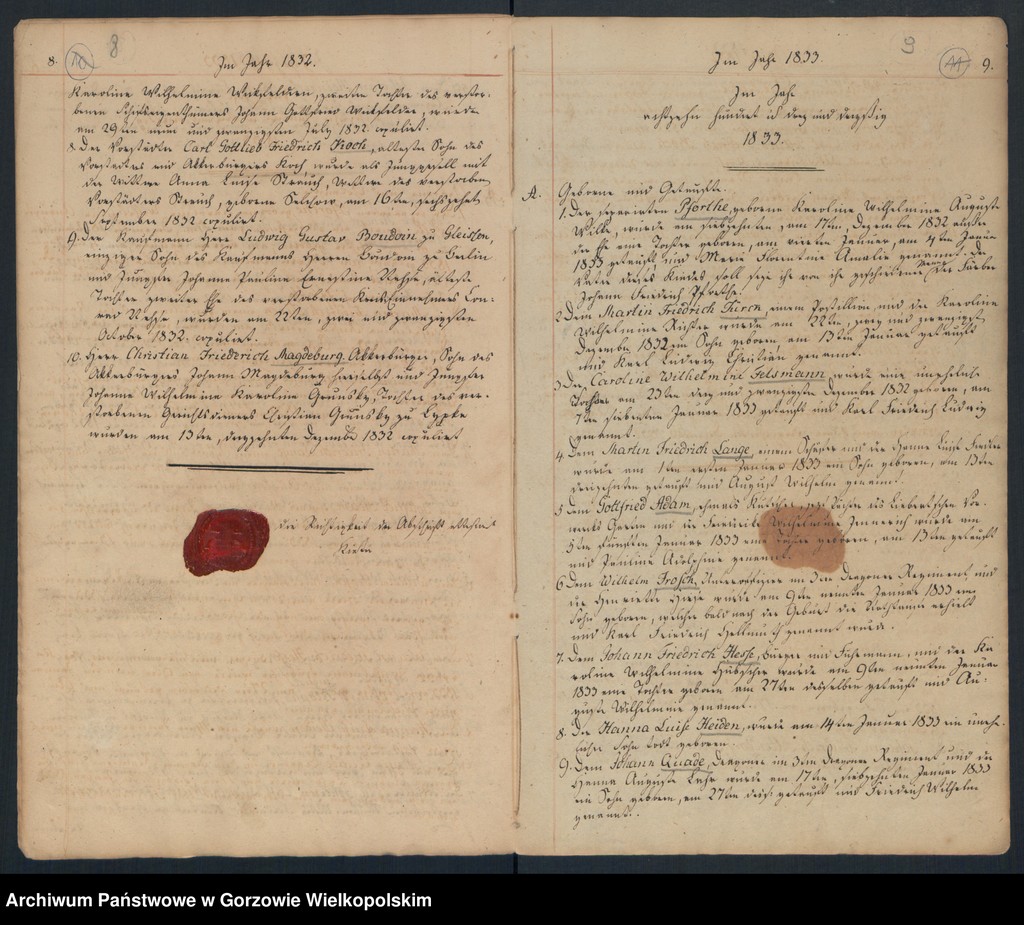 8. 10 8
Im Jahr 1832.
Karoline Wilhelmine Weitzfelder, zweiten Tochter des verstor-
benen Schiffseigenthümers Johann Gottfried Weitzfelder, wurde
am 29ten neun und zwanzigsten July 1832. copulirt.
8. Der Vorstädter Carl Gottlieb Friedrich Koch, ältester Sohn des
Vorstädters und Ackerbürgers Koch wurde als Junggesell mit
der Wittwe Anna Luise Strauch, Wittwe des verstorbenen
Vorstädters Strauch, geborne Selchow, am 16ten, sechszehnten
September 1832 copulirt.
9. Der Kaufmann Herr Ludwig Gustav Boudoin zu Gleissen,
einziger Sohn des Kaufmanns Herren Boudoin zu Berlin
und Jungfer Johanne Pauline Ernestine älteste
Tochter zweiter Ehe des verstorbenen Con-
rad wurden am 22ten, zwei und zwanzigsten
October 1832. copulirt.
10. Herr Christian Friederich Magdeburg, Ackerbürger, Sohn des
Ackerbürgers Johann Magdeburg hierselbst und Jungfer
Johanne Wilhelmine Karoline Tochter des ver-
storbenen Gerichtsdieners Christian zu
wurden am 13ten, dreyzehnten Dezember 1832 copulirt
die Richtigkeit der Abschrift attestirt
9 11 9.
Im Jahr 1833.
Im Jahr
achtzehn hundert und drey und dreyssig
1833.
A. Geborne und Getaufte.
1. Der separirten Pforthe, geborne Karoline Wilhelmine Auguste
Wilke, wurde am siebzehnten, am 17ten, Dezember 1832 außer
der Ehe eine Tochter geboren, am vierten Januar, am 4ten Januar
1833 getauft und Marie Florentine Amalie genannt. Der
Vater dieses Kindes soll der Färber
Johann Friedrich
2. Dem Martin Friedrich Türck, einem Postillion und der Karoline
Wilhelmine wurde am 22ten, zwey und zwanzigsten
Dezember 1832 ein Sohn geboren am 13ten Januar getauft
und Karl Ludwig Christian genannt.
3. Der Caroline Wilhelmine Felsmann, wurde eine uneheliche
Tochter am 23ten drey und zwanzigsten Dezember 1832 geboren, am
7ten siebenten Januar 1833 getauft und Karl Friedrich Ludwig
genannt.
4. Dem Martin Friedrich Lange, einem Schäfer und der Hanne Luise
wurde am 1ten ersten Januar 1833 ein Sohn geboren, am 13ten
dreizehnten getauft und August Wilhelm genannt.
5. Dem Gottfried Adam, ehmals Kutscher, Vor-
werks und der Friederike Wilhelmine Jennerich wurde am
5ten fünften Januar 1833 eine Tochter geboren, am 13ten getauft
und Pauline Adolphine genannt.
6. Dem Wilhelm Frosch, Unteroffizier im 3ten Dragoner Regiment und
der Henriette wurde am 9ten neunten Januar 1833 ein
Sohn geboren, welcher bald nach der Geburt die Nothtaufe erhielt
und Karl Friedrich Hellmuth genannt wurde.
7. Dem Johann Friedrich Hesse, Bürger und Fuhrmann, und der Ka-
roline Wilhelmine Hübscher wurde am 9ten neunten Januar
1833 eine Tochter geboren am 27ten desselben getauft und Au-
guste Wilhelmine genannt.
8. Die Hanna Luise Heiden, wurde am 14ten Januar 1833 ein unehe-
licher Sohn todt geboren.
9. Dem Johann Quade, Dragoner im 3ten Dragoner Regiment und der
Hanna Auguste wurde am 17ten, siebzehnten Januar 1833
ein Sohn geboren, am 27ten getauft und Friedrich Wilhelm
genannt.
Archiwum Państwowe w Gorzowie Wielkopolskim